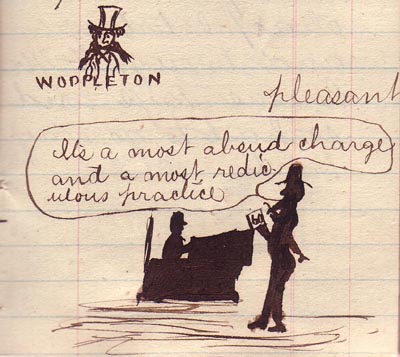 WOPPLETON
pleasant
It's a most absud charge
and a most redic-
ulous practice